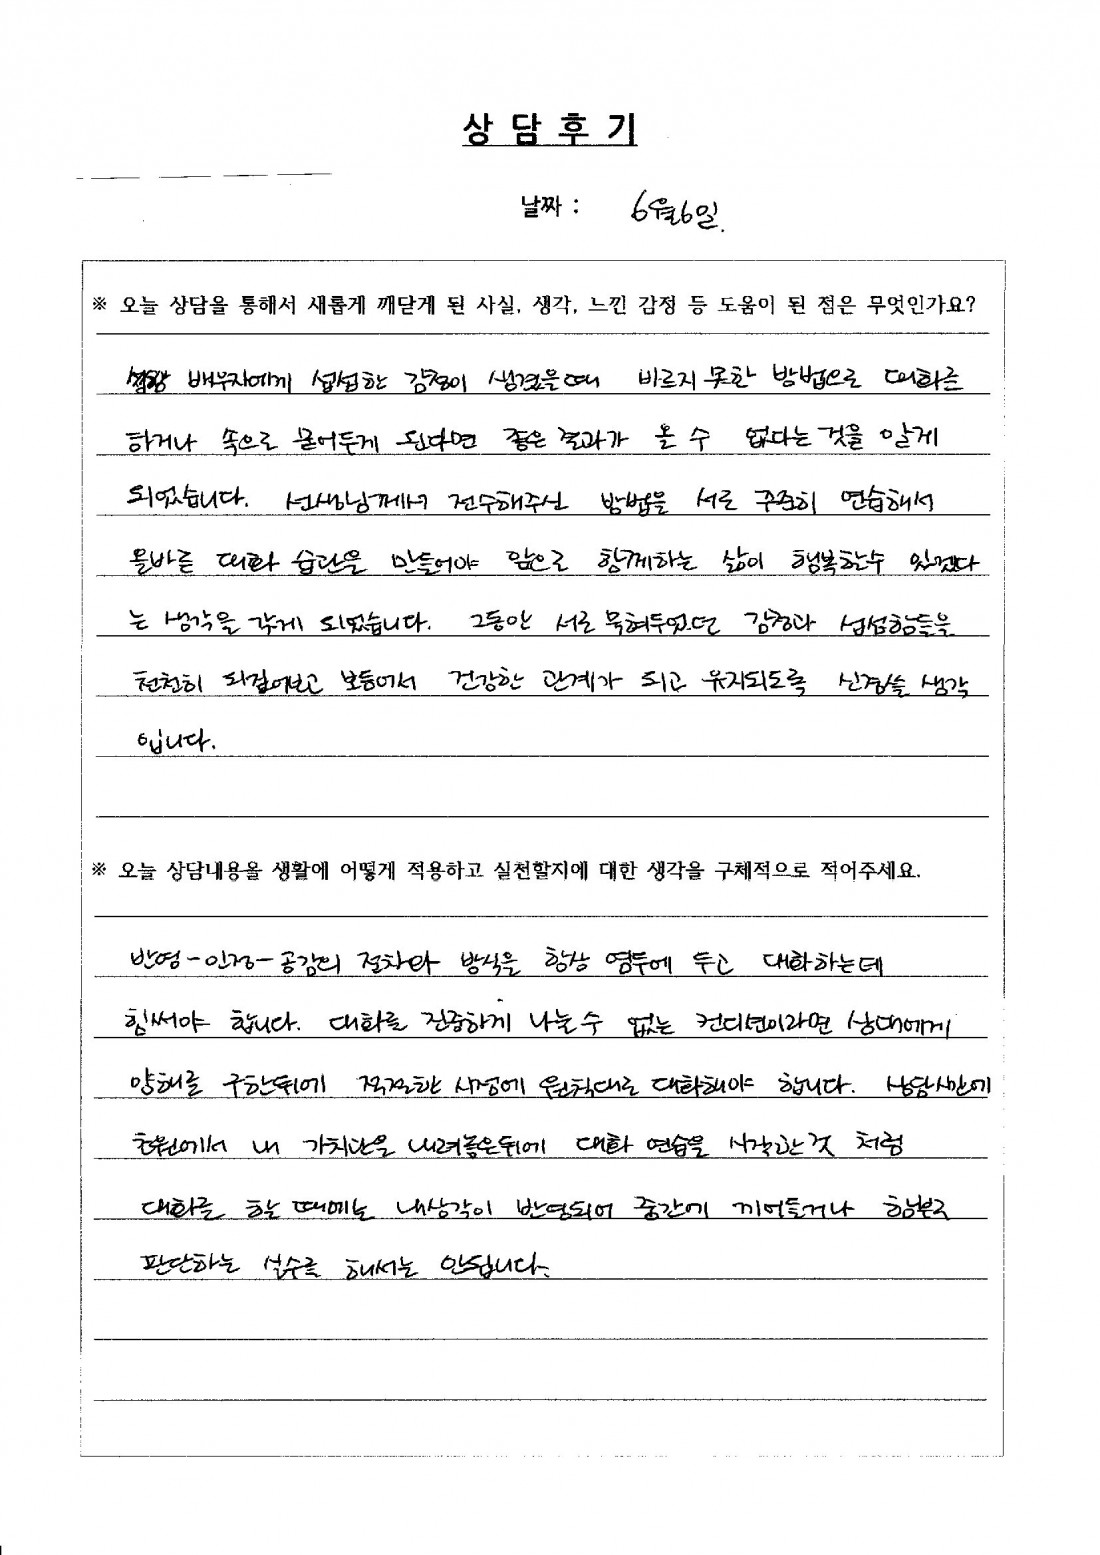 상 담 후 기
날짜 : 6월6일.
※ 오늘 상담을 통해서 새롭게 깨닫게 된 사실, 생각, 느낀 감정 등 도움이 된 점은 무엇인가요?
배우자에게 섭섭한 감정이 생겼을때 바르지 못한 방법으로 대화를
하거나 속으로 묻어두게 된다면 좋은 결과가 올 수 없다는 것을 알게
되었습니다. 선생님께서 전수해주신 방법을 서로 꾸준히 연습해서
올바른 대화 습관을 만들어야 앞으로 함께하는 삶이 행복할수 있겠다
는 생각을 갖게 되었습니다. 그동안 서로 묵혀두었던 감정과 섭섭함들을
천천히 되짚어보고 보듬어서 건강한 관계가 되고 유지되도록 신경쓸 생각
입니다.
※ 오늘 상담내용을 생활에 어떻게 적용하고 실천할지에 대한 생각을 구체적으로 적어주세요.
반영-인정-공감의 절차와 방식을 항상 염두에 두고 대화하는데
힘써야 합니다. 대화를 진중하게 나눌수 없는 컨디션이라면 상대에게
양해를 구한뒤에 적절한 시점에 원칙대로 대화해야 합니다. 상담시간에
초원에서 내 가치관을 내려놓은뒤에 대화 연습을 시작한것 처럼
대화를 할 때에는 내생각이 반영되어 중간에 끼어들거나 함부로
판단하는 실수를 해서는 안됩니다.